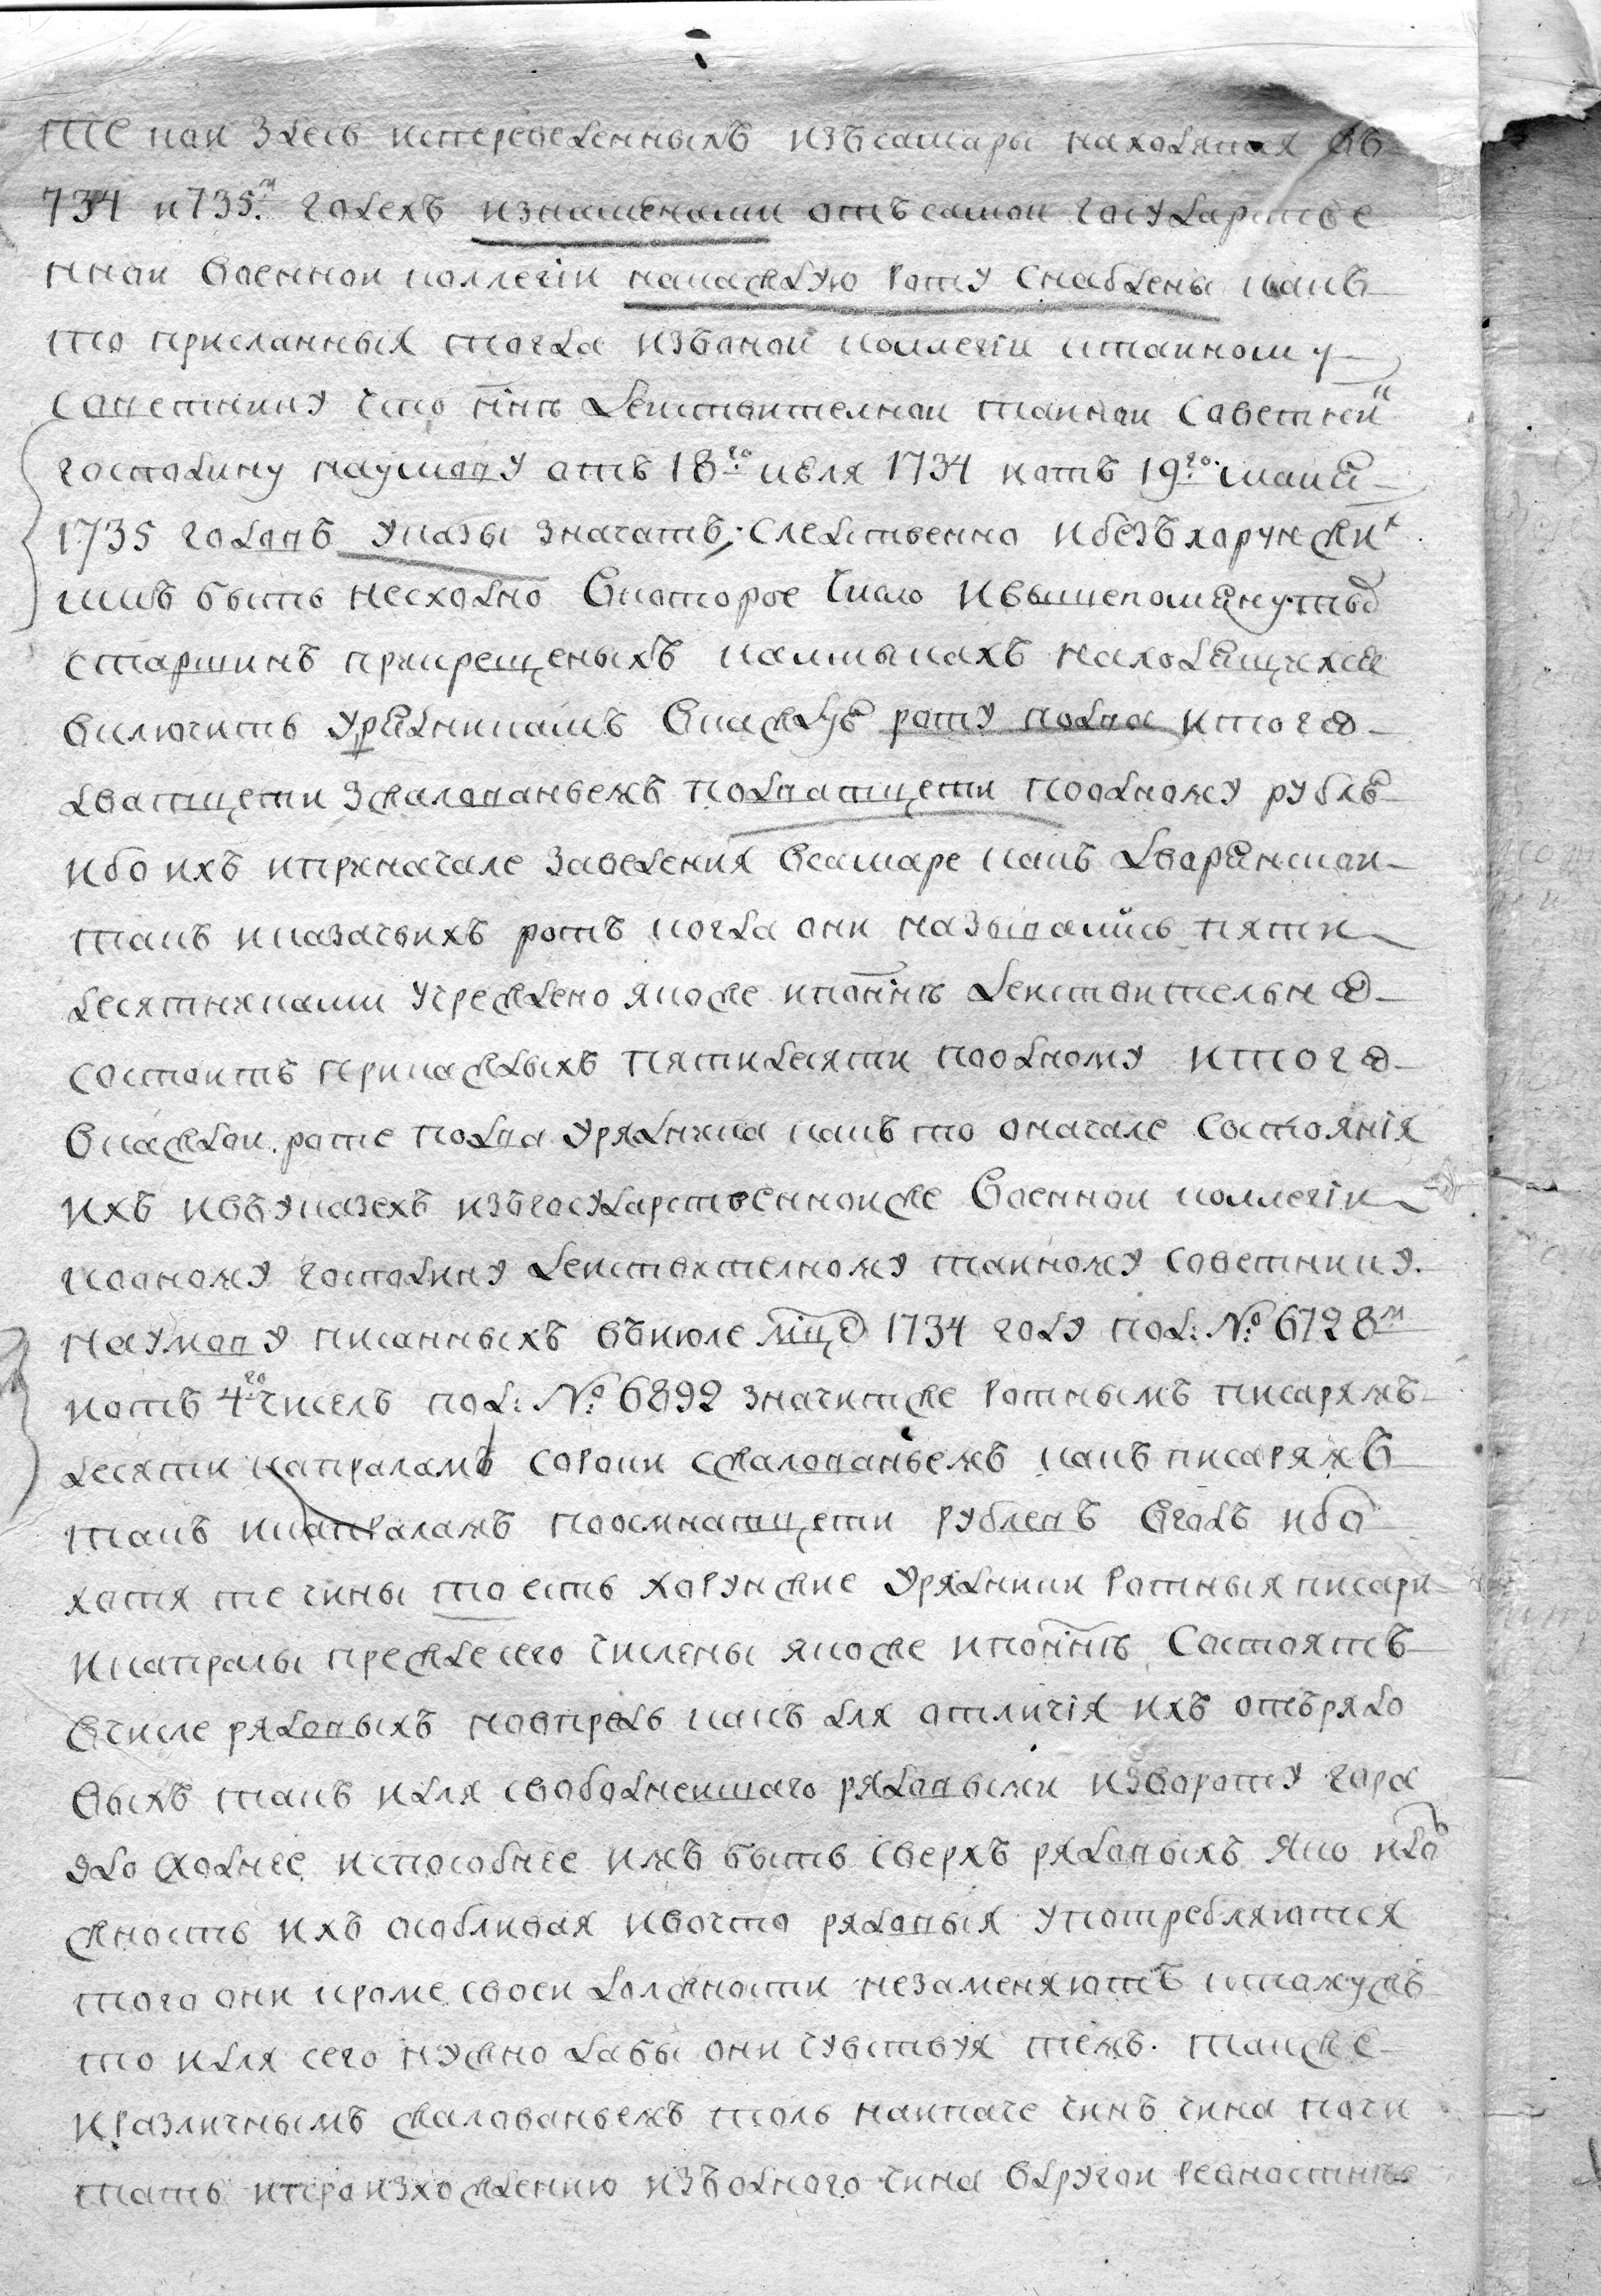 те кои здесь ипереведенныхъ изъсамары находятся въ
734 и735.м годехъ изнаменами отъсамои государстве
ннои военнои коллегіи накаждую роту снабдены какъ
то присланныя тогда изъонои коллегіи ктаиному
советнику что ннѣ деиствителнои таинои советнкъ
господину наумову отъ 18го июля 1734 иотъ 19го маия
1735 годовъ указы значатъ, следственно ибезъхорунжих
имъ быть несходно вкоторое число ивышепомянутыя
старшинъ прикрещеныхъ калмыкахъ находящихся
включить урядникамъ вкаждую роту подва итого
дватцети зжалованьемъ подватцети поодному рублю
ибо ихъ иприначале заведения всамаре какъ дворянскои
такъ иказачьихъ ротъ когда они назывались пяти
десятниками учреждено якоже ипоннѣ деиствительно
состоитъ прикаждыхъ пятидесяти поодному итого
вкаждои роте подва урядника какъ то оначале состоянія
ихъ ивъуказехъ изъгосударственноиже военнои коллегіи
коономуо господину деиствителному таиному советнику.
наумову писанныхъ въиюле мцѣ 1734 году под: № 6728м
иотъ 4го чиселъ под: № 6892 значитже ротнымъ писарямъ
десяти капраламъ сороки сжалованьемъ какъ писарямъ
такъ икапраламъ поосмнатцети рублевъ вгодъ ибо
хотя те чины то есть хорунжие урядники ротныя писари
икапралы преждесего числены якоже ипоннѣ состоятъ
вчисле рядовыхъ новпредь какъ для отличія ихъ отърядо
выхъ такъ идля свободнеишаго рядовыми изворотy гора
здо сходнее испособнее имъ быть сверхъ рядовыхъ яко идол
жность ихъ особливая ивочто рядовыя употребляются
того они кроме своеи должности незаменяютъ ктомужъ
то идля сего нужно дабы они чувствуя темъ. такоже
иразличнымъ жалованьемъ толь наипаче чинъ чина почи
тать ипроизхождению изъодного чина вдругои ревностнее